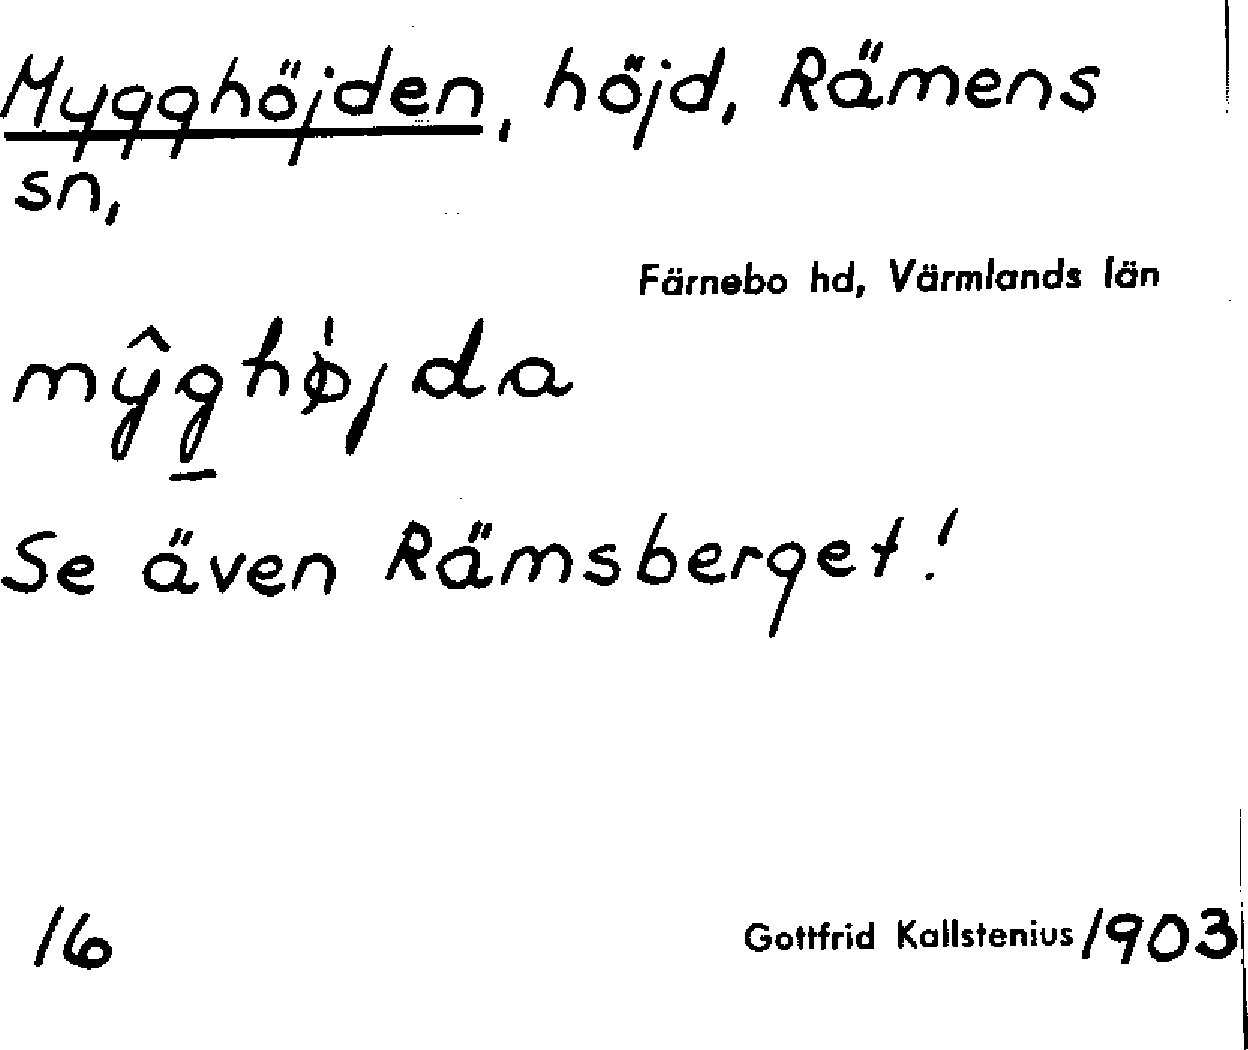 Mygghöjden, höjd, Rämens
sn,
Färnebo hd, Värmlands län
mŷg̲hø̍jda
Se även Rämsberget!
16
Gottfrid Kallstenius 1903